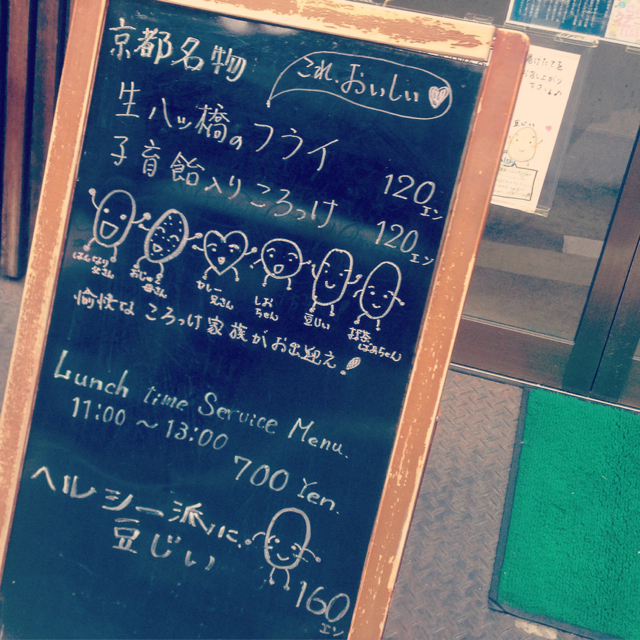 京都名物
これ、おいしい
生八ッ橋のフライ
120エン
子育飴入りころっけ
120エン
はんなり
父さん
おじゃが
母さん
カレー
兄さん
しお
ちゃん
豆じい
ばあちゃん
愉快なころっけ家族がお出迎え!
Lunch time Service Menu.
11:00～13:00
700 Yen.
ヘルシー派に
豆じい
160エン
豆じい